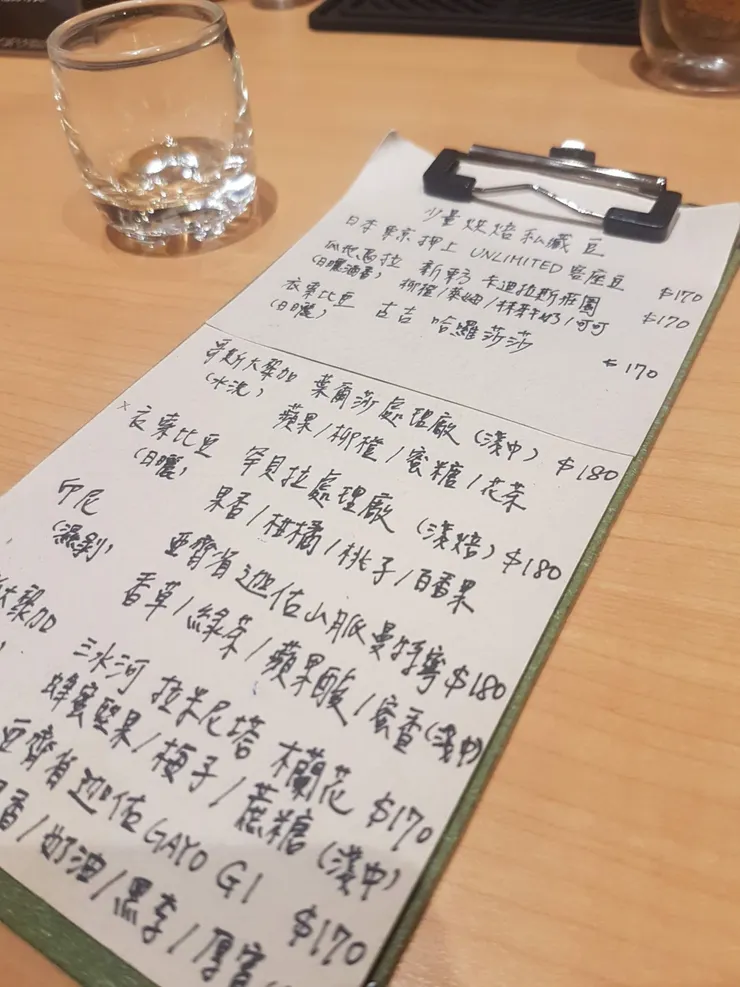 少量烘焙私藏豆
日本東京押上 UNLIMITED 客座豆 $170
瓜地馬拉 新東方 卡迪拉斯莊園 $170
(日曬酒香) 柳橙/萊姆/抹茶牛奶/可可
衣索比亞 古吉 哈羅莎莎 $170
(日曬)
哥斯大黎加 葉爾莎處理廠 (淺中) $180
(水洗) 蘋果/柳橙/蜜糖/花茶
x 衣索比亞 罕貝拉處理廠 (淺焙) $180
(日曬) 果香/柑橘/桃子/百香果
印尼 亞齊省迦佑山脈曼特寧 $180
(濕剝) 香草/綠茶/蘋果酸/蜜香 (淺中)
大黎加 三水河 拉米尼塔 木蘭花 $170
蜂蜜堅果/梅子/蔗糖 (淺中)
亞齊省迦佑 GAYO G1 $170
香/奶油/黑李/厚實